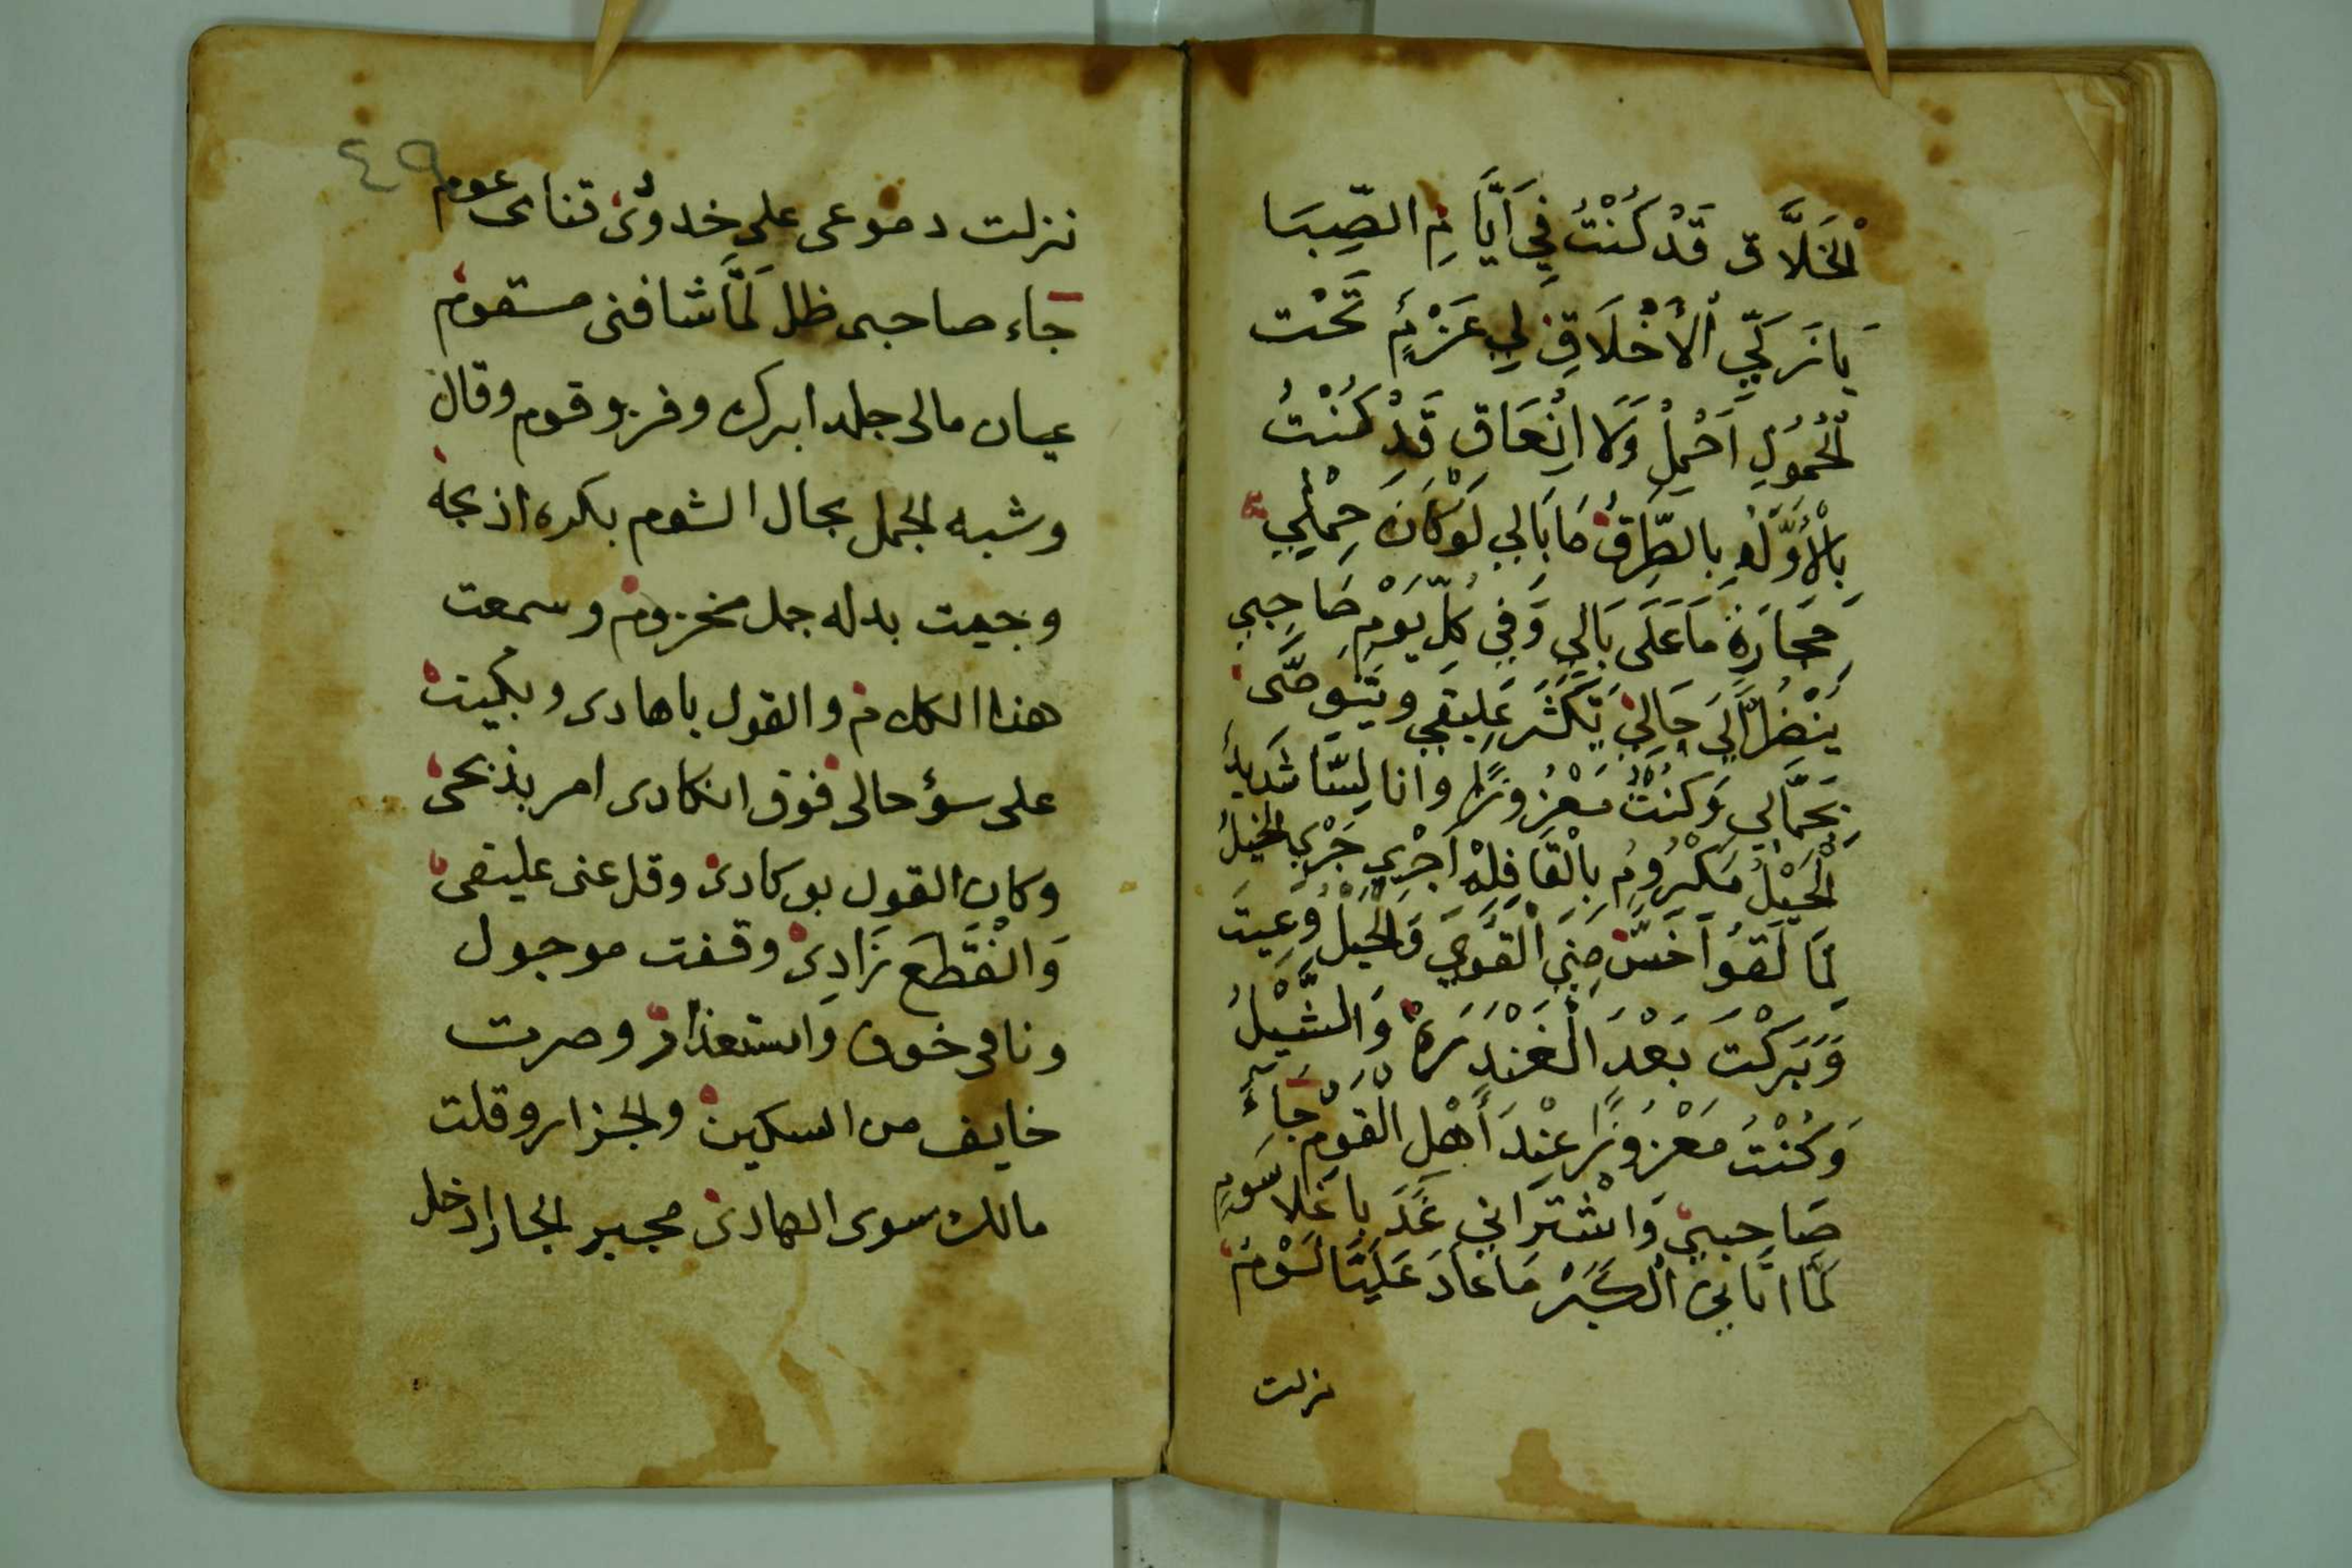 الْخَلَّاق قَدْ كُنْتُ فِي اَيَّامِ الصِّبَا
يَا نَرَكِيّ الْأَخْلَاقِ لِي عَزْمٌ تَحْت
الْحُمُولِ اَحْمِلْ وَلَا انْعَاق قَدْ كُنْتُ
بِالْأَوَّلَهْ بِالطِّرَقْ مَا بَالِي لَوْ كَانَ حِمْلِي
حَجَارَهْ مَا عَلَى بَالِي وَفِي كُلّ يَوْمِ صَاحِبِي
يَنْضُرْ اِلَي حَالِيْ يَكَثَّر عَلِيقِي ويتوصَّى
بَحَمَّالِي وَكُنْتْ مَعْزُوزًا وانا لِسَّا شَدِيدُ
الْحَيْلُ مَكْرُومُ بِالْقَافِلِهْ اَجْرِي جَرْيِ الْخَيْلُ
لِمَا لَقَوْا اَخَسّ مِنِي الْقَوِي وَالْحَيْلْ وَعِيتَ
وَبَرَكْتَ بَعْدَ الْغَنْدَرَهْ وَالشَّيْلُ
وَكُنْتُ مَعْزُوزًا عِنْدَ أَهْلِ الْقَوْمْ جَاءَ
صَاحِبِيْ وَاشْتَرَانِي غَدَ بِاغلا سَومِ
لَمَّا اتَانِيْ الْكِبَرْ مَا عَادَ عَلَيَّا لَوْمْ
نزلت
٤٩
نزلت دموعى على خدوْىْ قناى عوم
جاء صاحبى ظل لَمَّا شافنى مسقوم
عيان مالى جلد ابرك وفز وقوم وقال
وشبه الجمل بحال الشوم بكره اذبحه
وجيت بداله جمل مخزوم وسمعت
هذا الكلام والقول ياهادى وبكيت
على سؤحالى فوق انكادى امر بذبحى
وكان القول بو كادى وقل عنى عليقى
وَانْقَطَعَ زَادِى وقفت موجول
ونا فى خوف واستعذار وصرت
خايف من السكين والجزار وقلت
مالك سوى الهادى مجير الجار ادخل